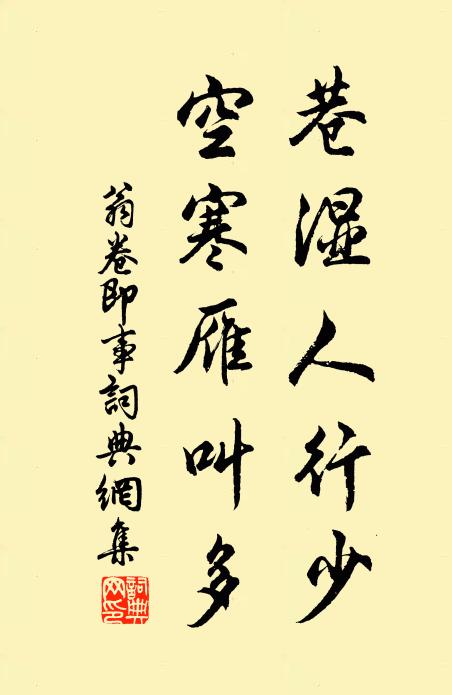 巷湿人行少
空寒雁叫多
翁卷即事詞典網集
詞典网印